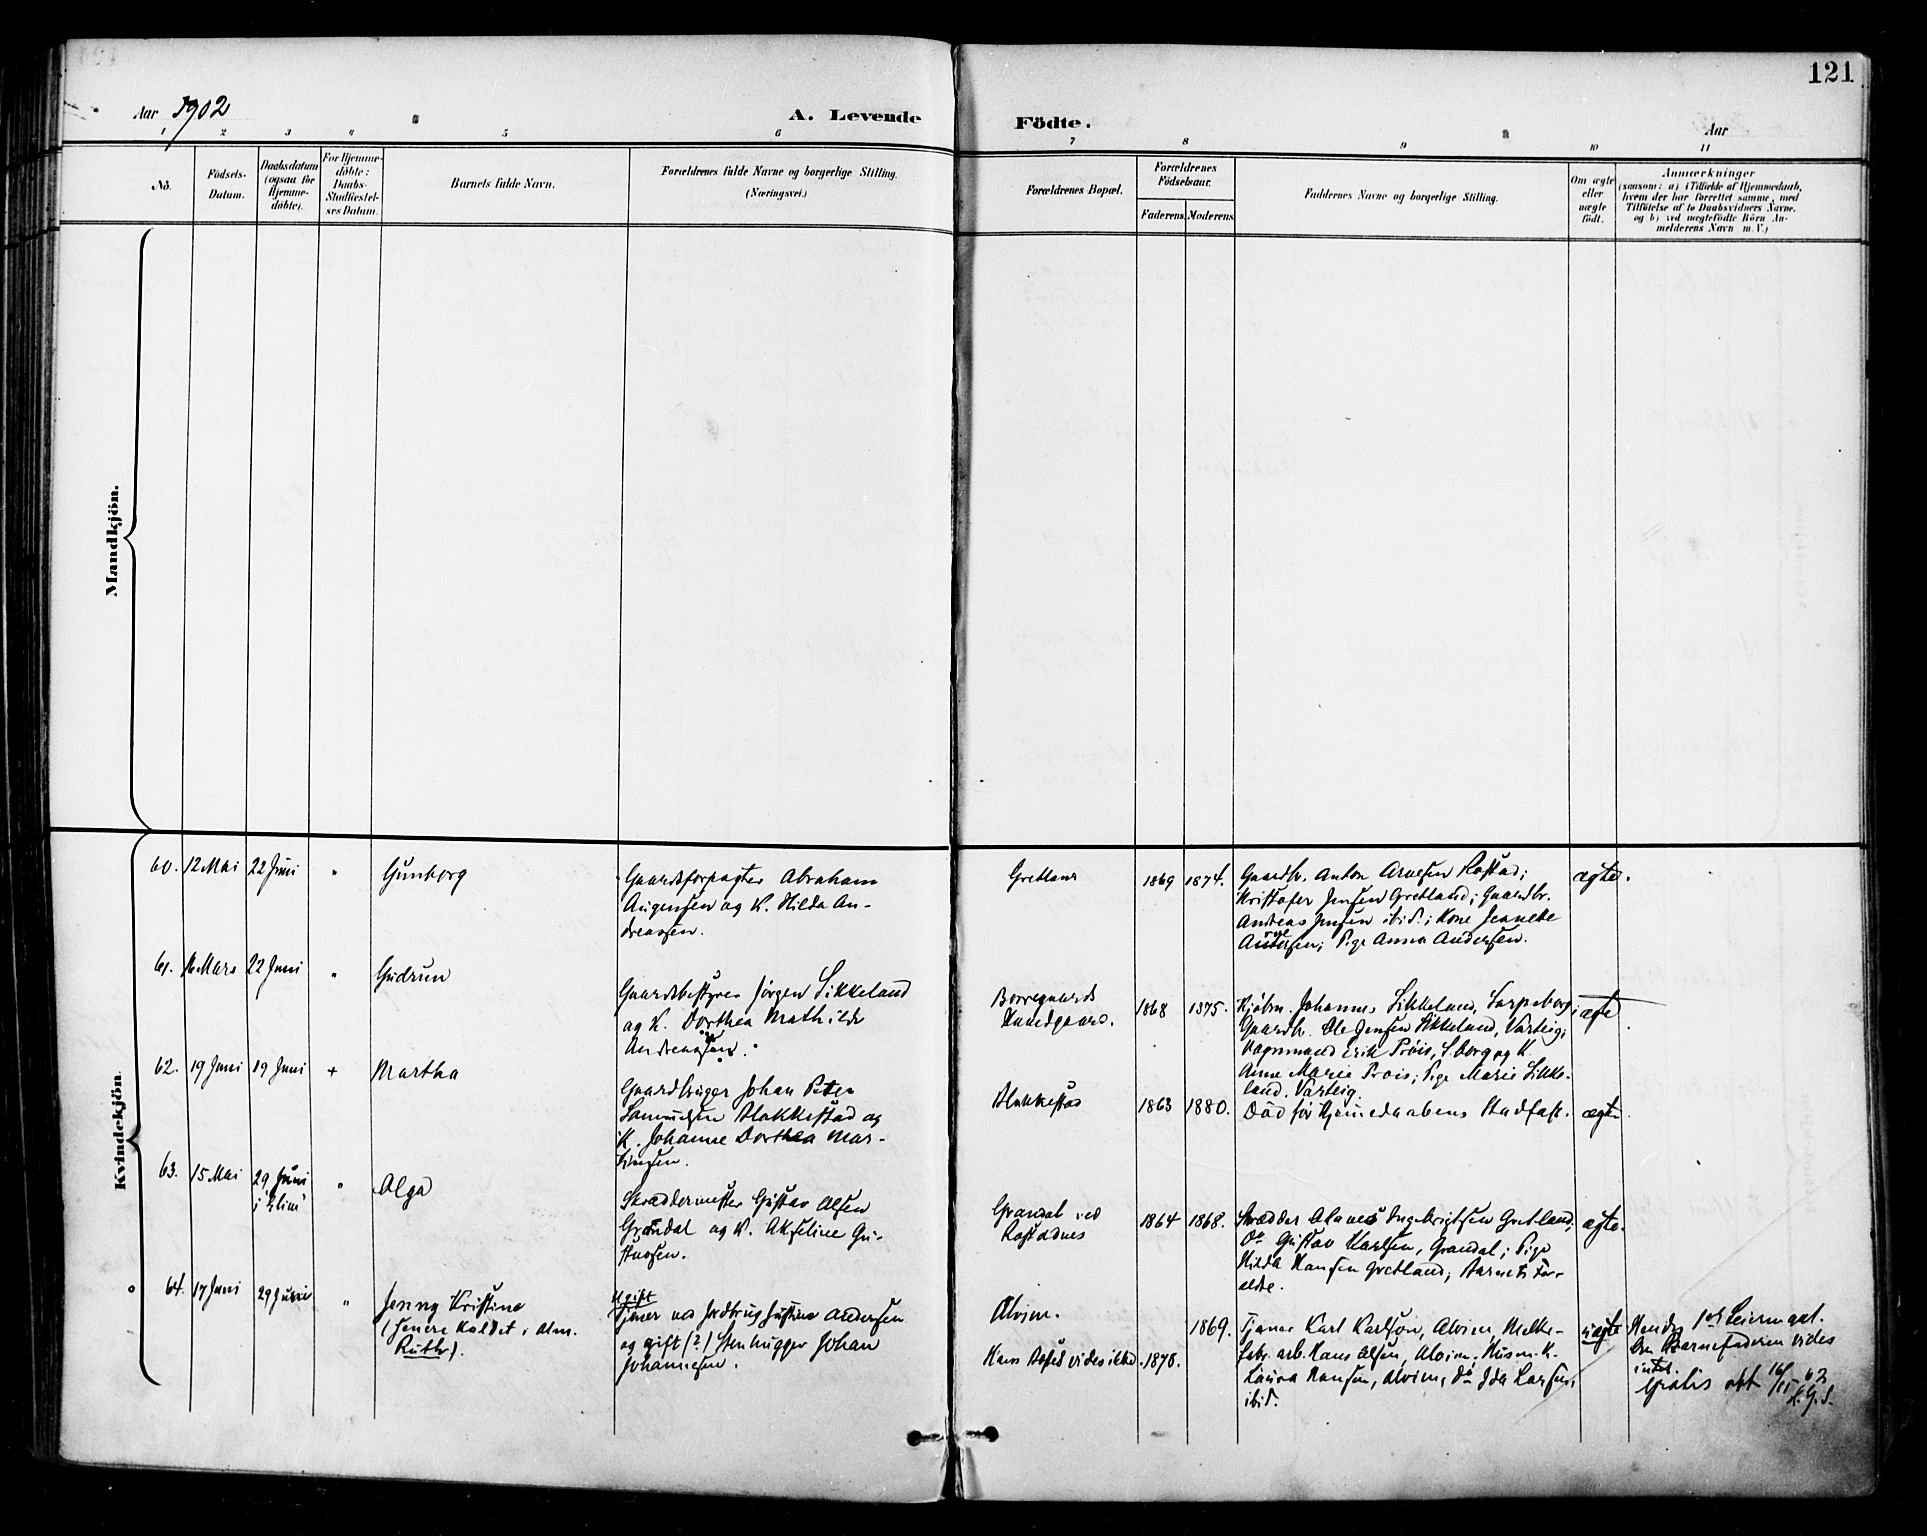 121
Aar 1902
A. Levende Födte.
Aar
1 2 3 4 5 6 7 8 9 10 11
No.
Födsels-Datum.
Daabsdatum (ogsaa for Hjemme-döbte).
For Hjemme-döbte: Daabs-Stadfæstel-ses Datum.
Barnets fulde Navn.
Forældrenes fulde Navne og borgerlige Stilling.
(Næringsvei.)
Forældrenes Bopæl.
Forældrenes Födselsaar.
Faderens. Moderens.
Faddernes Navne og borgerlige Stilling.
Om ægte eller uægte födt.
Anmærkninger
(saasom: a) i Tilfælde af Hjemmedaab,
hvem der har forrettet samme, med
Tilföielse af to Daabsvidners Navne.
og b) ved uægtefödte Börn An-
melderens Navn m. V.)
Mandkjön.
Kvindekjön.
60. 12 Mai 22 Juni " Gunborg
Gaardsforpagter Abraham
Augensen og K. Hilda An-
dreassen.
Gretland 1869 1874.
Gaardbr. Anton Arnesen Rostad;
Kristofer Jensen Gretland; Gaardbr.
Andreas Jensen ibid.; Kone Jennete
Andersen; Pige Anna Andersen.
ægte.
61. 16 Mars 22 Juni " Gudrun
Gaardsbestyrer Jörgen Likkeland
og K. Dorthea Mathilde
Andreassen.
Borregaards
Hovedgaard. 1868 1875.
Kjöbm. Johannes Likkeland, Sarpsborg;
Gaardbr. Ole Jensen Likkeland, Varteig;
Vognmand Erik Pröis, S.borg og K.
Anne Marie Pröis; Pige Marie Likke-
land, Varteig.
ægte
62. 19 Juni 19 Juni + Martha
Gaardbruger Johan Peter
Samuelsen Hakkestad og
K. Johanne Dorthea Mar-
tinsen.
Hakkestad 1863 1880.
Död för Hjemmedaabens Stadfæst.
ægte.
63. 15 Mai 29 Juni " Olga
i Elim
Skræddermester Gustav Olsen
Grandal og K. Akseline Gu-
stavsen.
Grandal ved
Rostadnes 1864 1868.
Skrædder Olaves Ingebrigtsen Gretland;
Do Gustav Karlsen, Grandal; Pige
Hilda Hansen Gretland; Barnets For-
ældre.
ægte.
64. 17 Juni 29 Juni " Jenny Kristine
(senere kaldet i Alm.
Ruth).
Ugift
Tjener ved Jordbrug Justine Andersen
og gift (?) Stenhugger Johan
Johannesen.
Alvim. 1869.
Hans Bopæl vides ikke. 1875.
Tjener Karl Karlson, Alvim, Melke-
fabr. arb. Hans Olsen, Alvim, Husm. K.
Laura Hansen, Alvim, do Ida Larsen,
ibid.
uægte
Hendes 1ste Leiermaal.
Om Barnefaderen vides
intet.
Gratis att 16/11 62